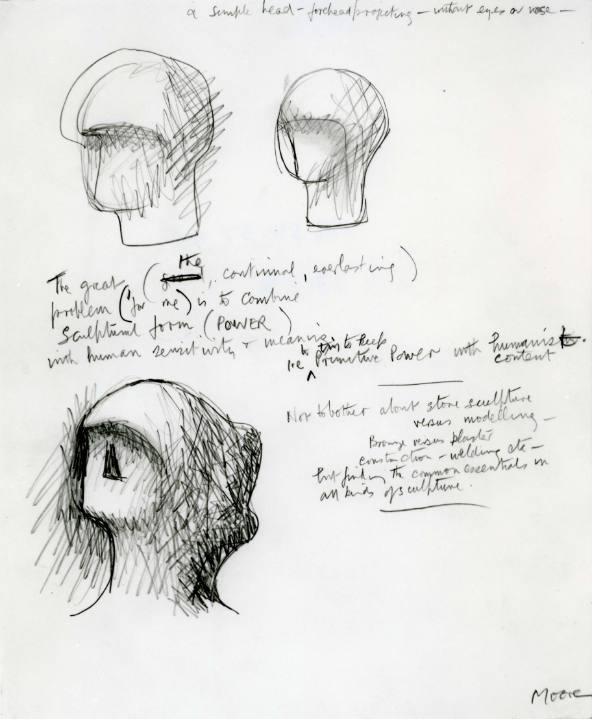 a simple head - forehead projecting - without eyes or nose -
The great, (the, continual, everlasting)
problem (for me) is to combine
sculptural form (POWER)
with human sensitivity & meaning
i.e. to try to keep Primitive Power with humanist
content
Not to bother about stone sculpture
versus modelling -
Bronze versus plaster
construction - welding etc -
but finding the common essentials in
all kinds of sculpture.
Moore